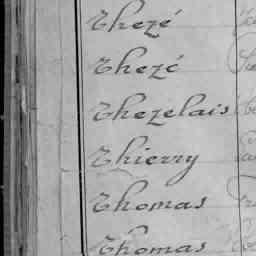 Thezé
Thezé
Thezelais
Thierry
Thomas
Thomas